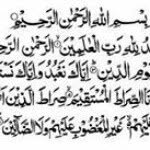 بِسْمِ اللهِ الرَّحْمٰنِ الرَّحِيْمِ
لِلّٰهِ رَبِّ الْعٰلَمِيْنَ الرَّحْمٰنِ
يَوْمِ الدِّيْنِ اِيَّاكَ نَعْبُدُ وَاِيَّاكَ
الصِّرَاطَ الْمُسْتَقِيْمَ صِرَاطَ الَّذِيْنَ
عَلَيْهِمْ غَيْرِ الْمَغْضُوْبِ عَلَيْهِمْ وَلَا الضَّآلِّيْنَ